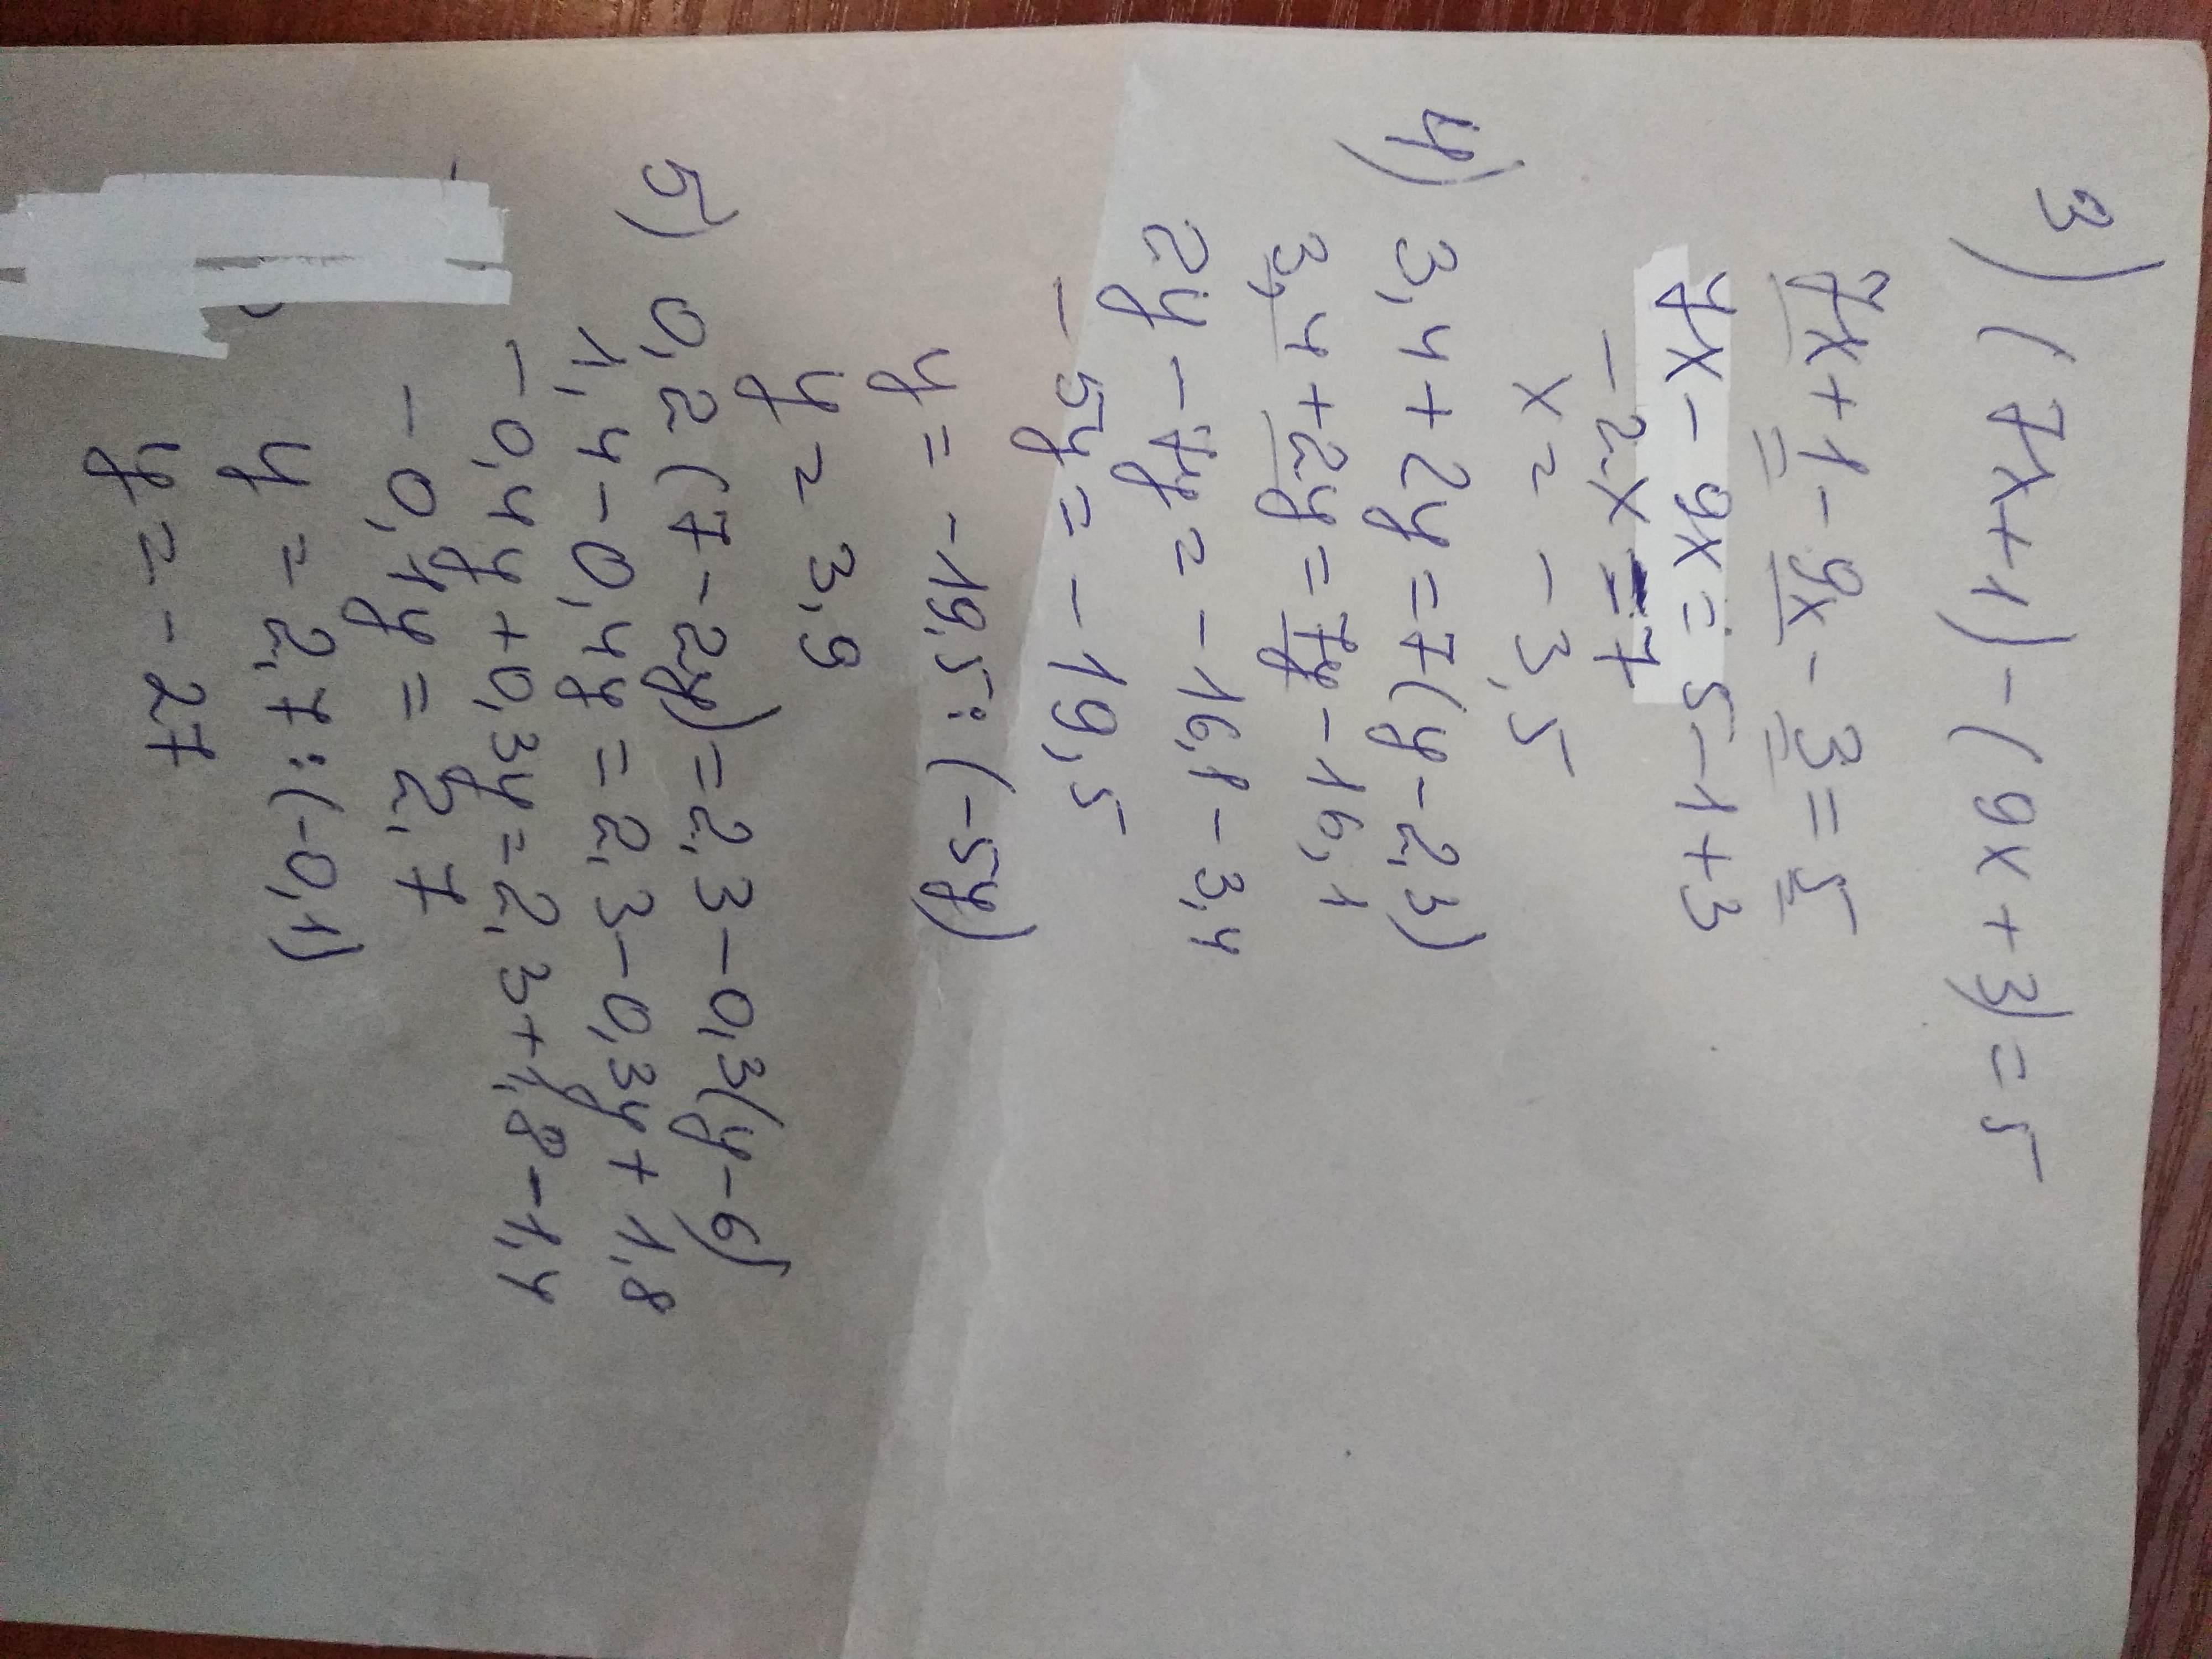 3) (7x+1)-(9x+3)=5
7x+1-9x-3=5
7x-9x=5-1+3
-2x=7
x=-3,5
4) 3,4+2y=7(y-2,3)
3,4+2y=7y-16,1
2y-7y=-16,1-3,4
-5y=-19,5
y=-19,5:(-5y)
y=3,9
5) 0,2(7-2y)=2,3-0,3(y-6)
1,4-0,4y=2,3-0,3y+1,8
-0,4y+0,3y=2,3+1,8-1,4
-0,1y=2,7
y=2,7:(-0,1)
y=-27